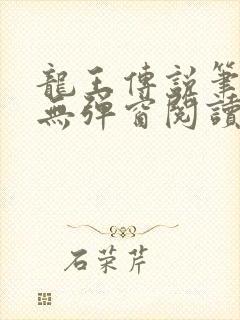 龍王傳說筆
無彈窗閱讀
石荣芹